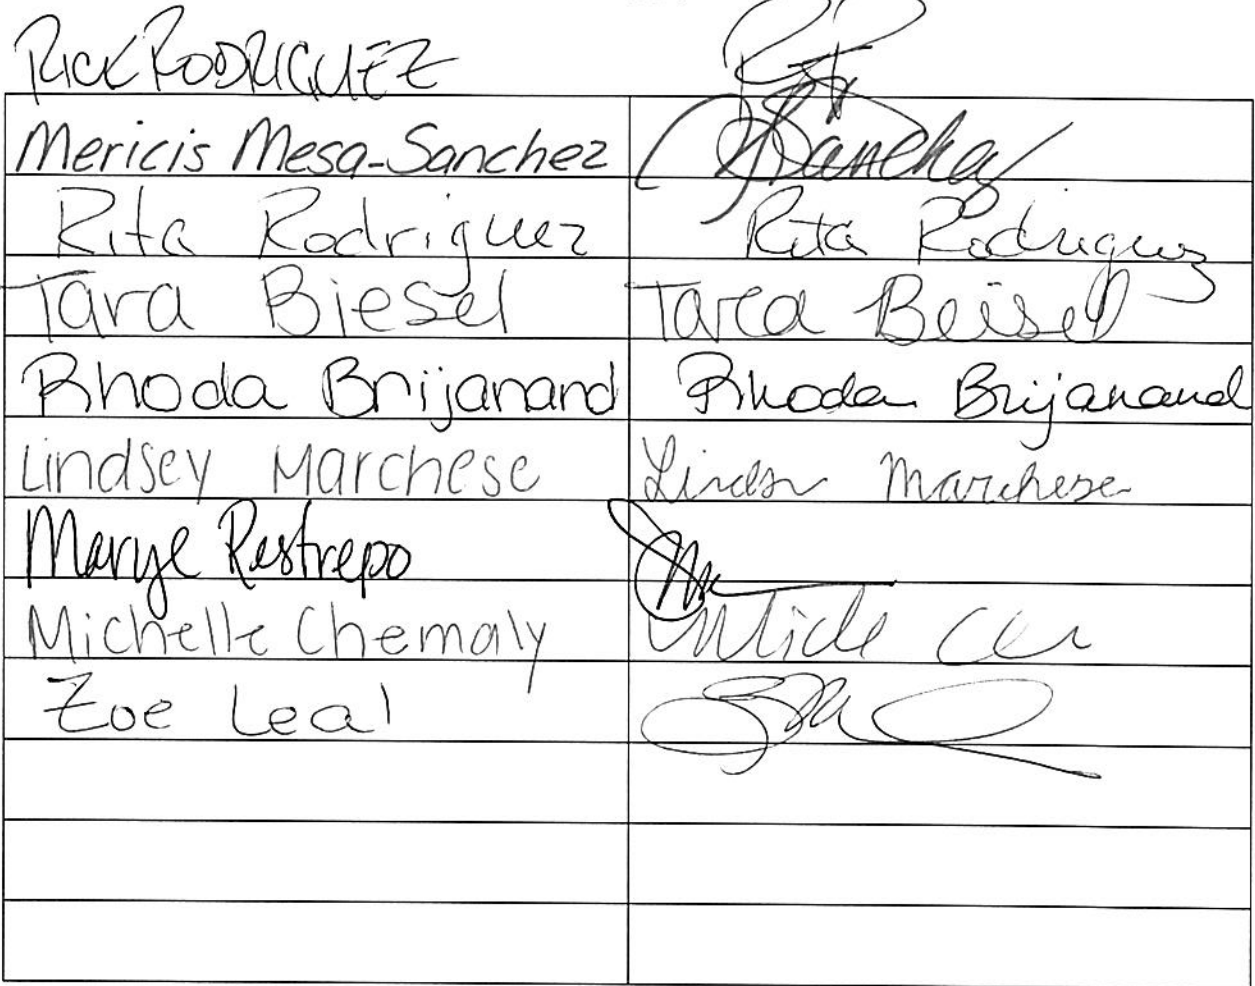 RICK RODRIGUEZ
Mericis Mesa-Sanchez Sanchez
Rita Rodriguez Rita Rodriguez
Tara Biesel Tara Beisel
Rhoda Brijanand Rhoda Brijanand
Lindsey Marchese Marchese
Marye Restrepo
Michelle Chemaly
Zoe Leal